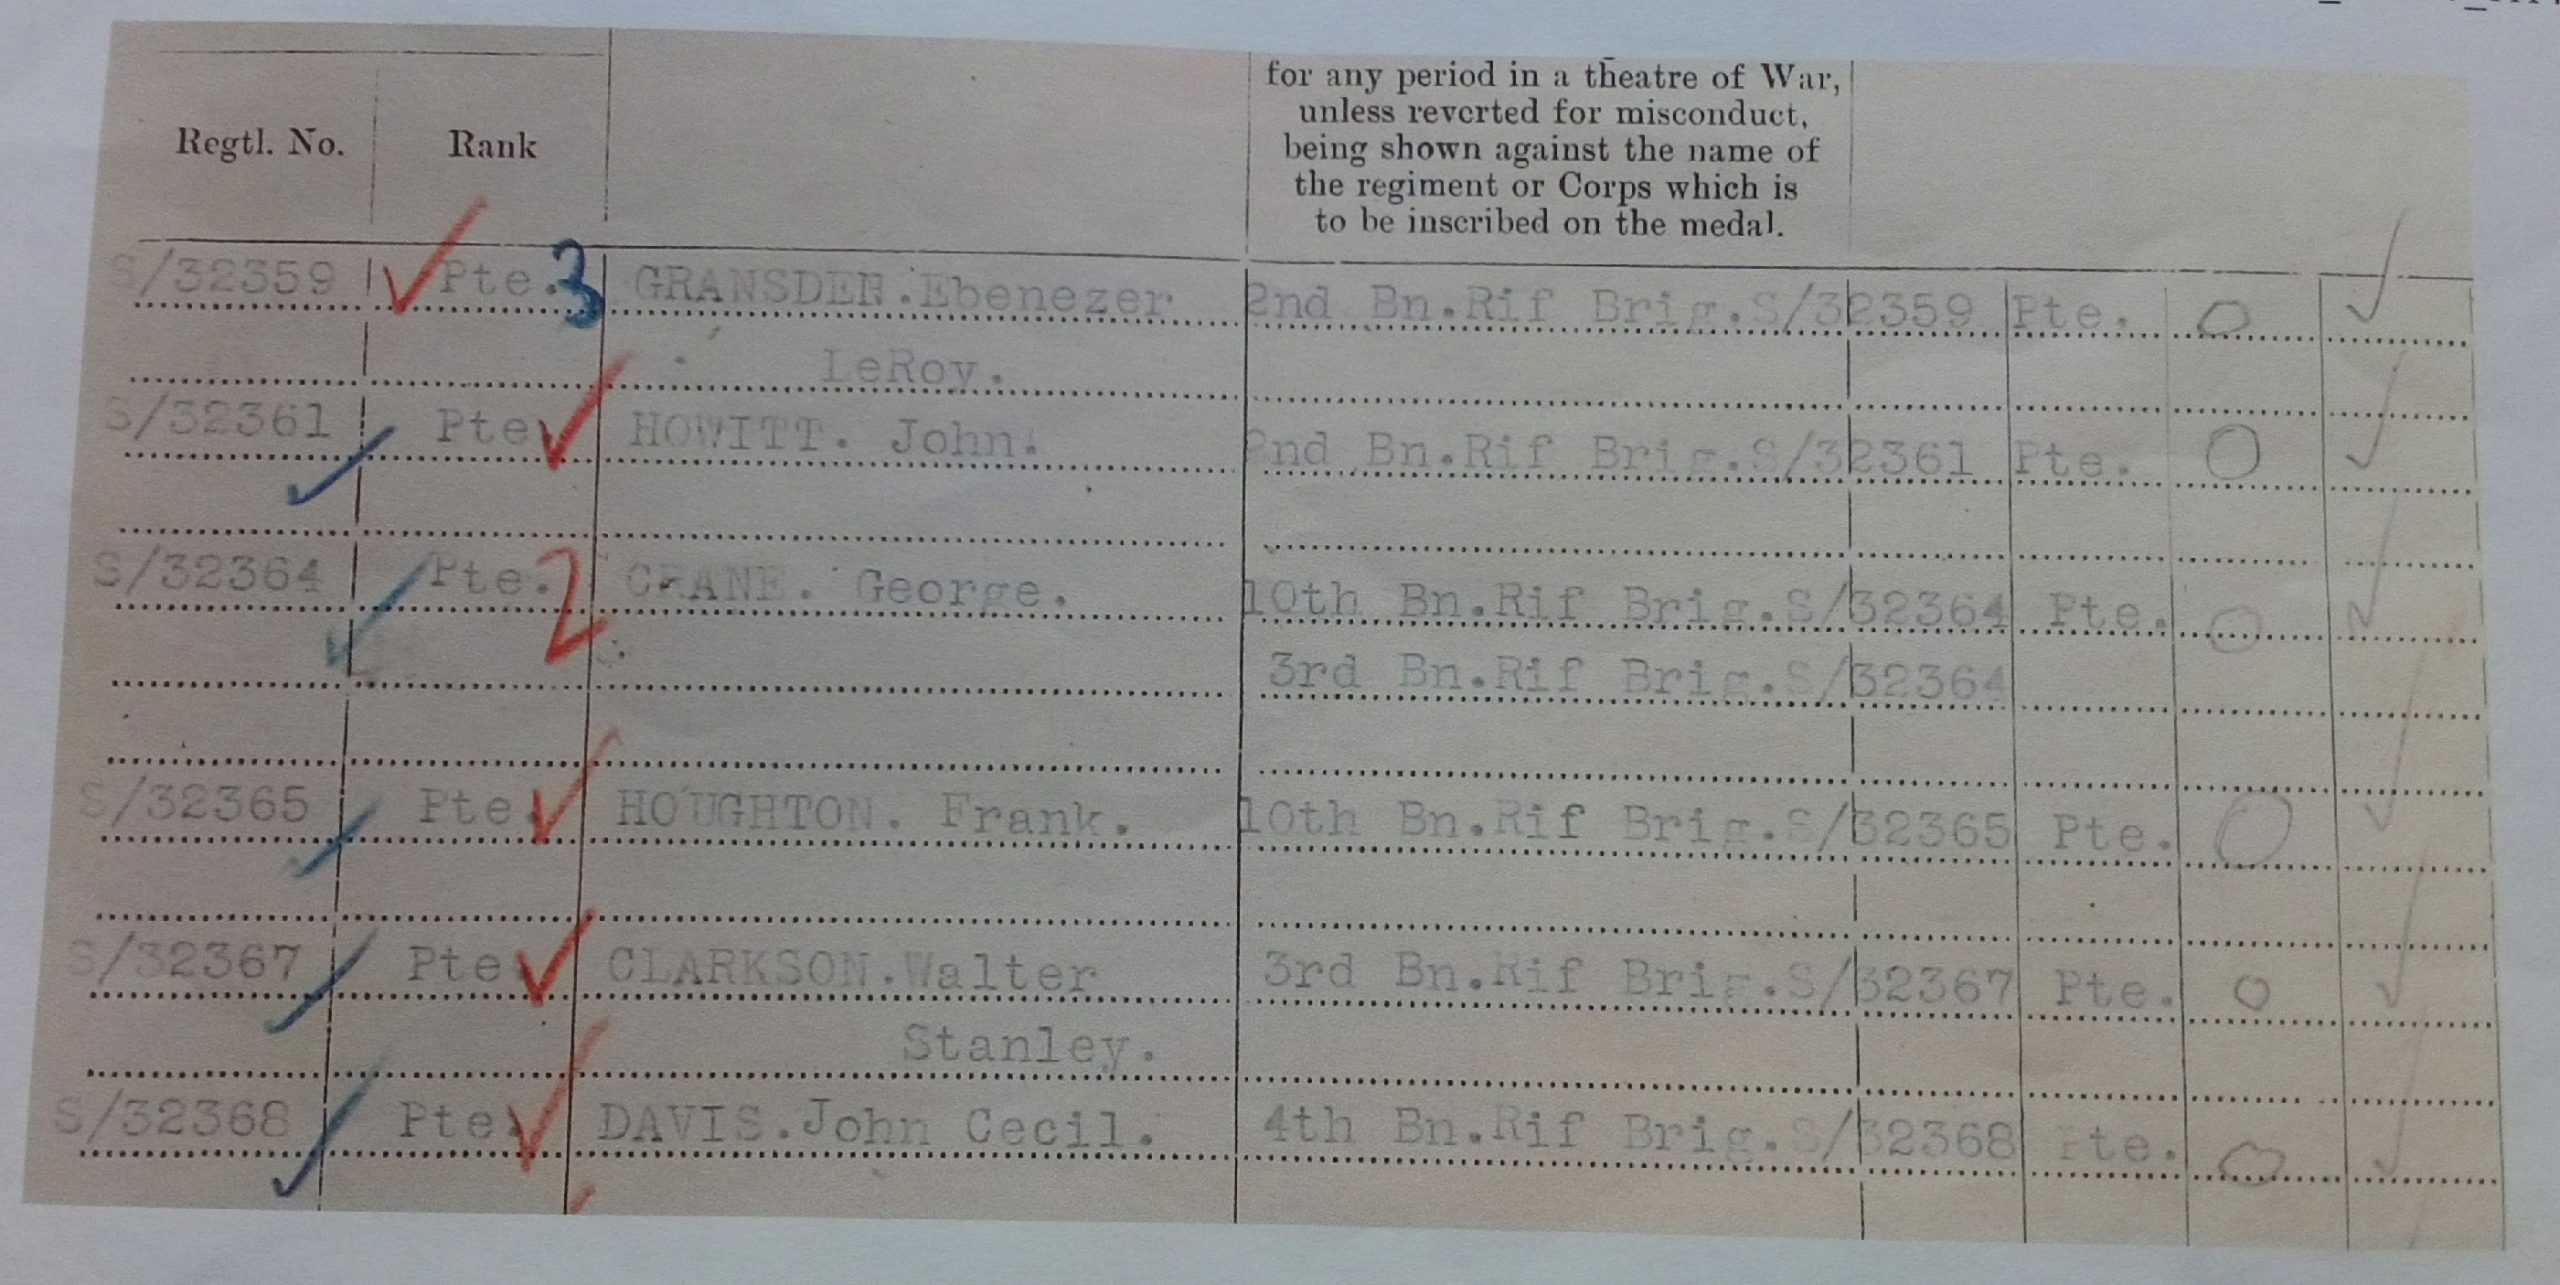 for any period in a theatre of War,
unless reverted for misconduct,
being shown against the name of
Regtl. No. Rank the regiment or Corps which is
to be inscribed on the medal.
S/32359 Pte. 3 GRANSDEN. Ebenezer 2nd Bn. Rif Brig. S/32359 Pte.
LeRoy.
S/32361 Pte HOWITT. John. 2nd Bn. Rif Brig. S/32361 Pte.
S/32364 Pte. 2 CRANE. George. 10th Bn. Rif Brig. S/32364 Pte.
3rd Bn. Rif Brig. S/32364
S/32365 Pte. HOUGHTON. Frank. 10th Bn. Rif Brig. S/32365 Pte.
S/32367 Pte CLARKSON. Walter 3rd Bn. Rif Brig. S/32367 Pte.
Stanley.
S/32368 Pte. DAVIS. John Cecil. 4th Bn. Rif Brig. S/32368 Pte.